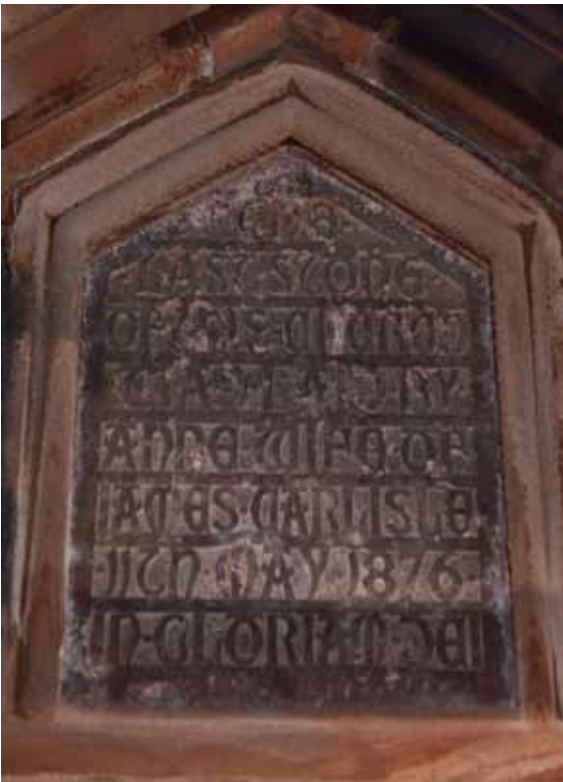 THE
LAST STONE
OF THIS CHURCH
WAS LAID BY
ANNE WIFE OF
JAMES·CARLISLE·
·11TH·MAY·1876·
IN·GLORIAM·DEI